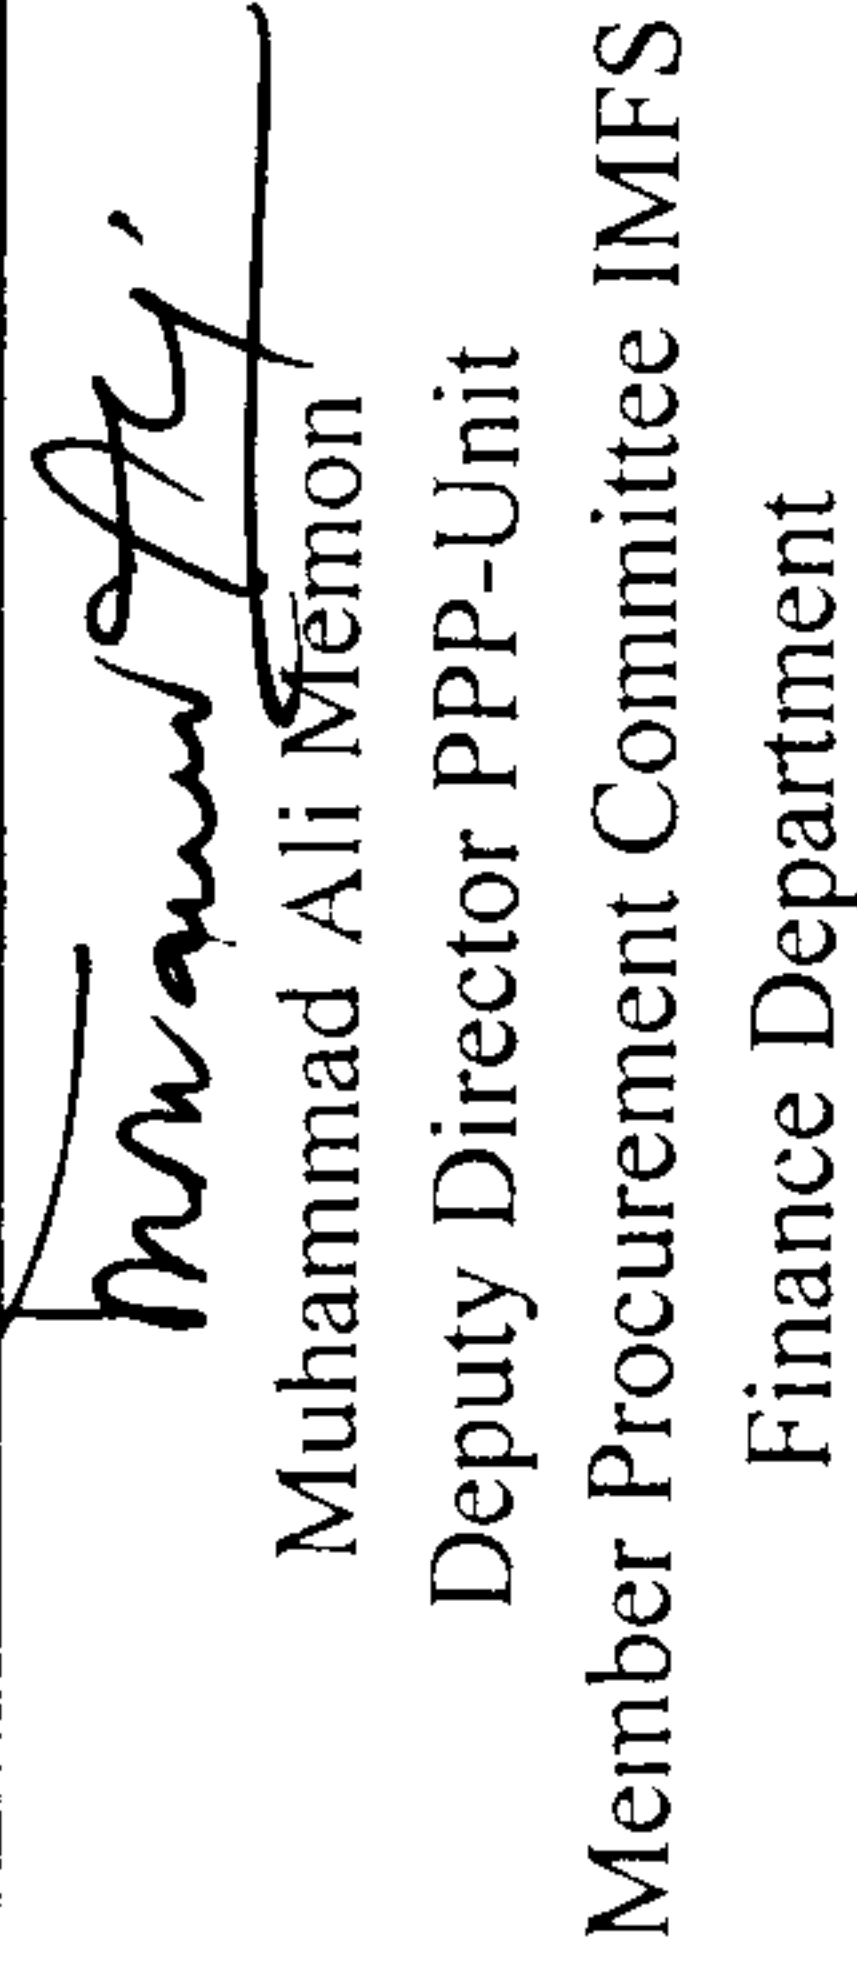 Muhammad Ali Memon
Deputy Director PPP-Unit
Member Procurement Committee IMFS
Finance Department